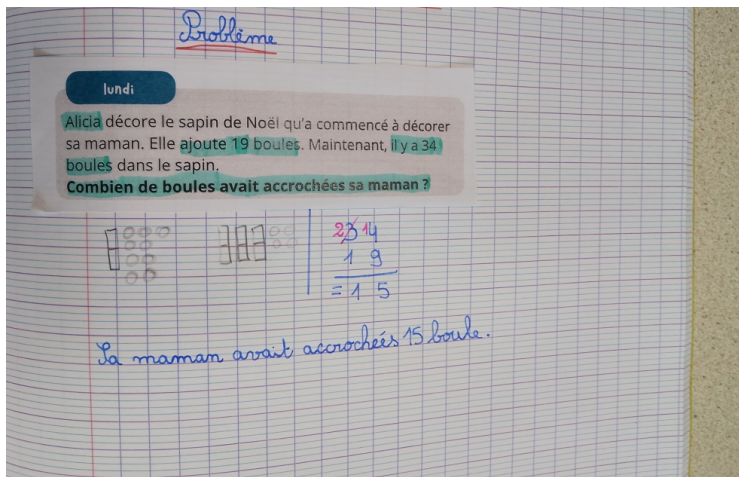 Problème
lundi
Alicia décore le sapin de Noël qu'a commencé à décorer
sa maman. Elle ajoute 19 boules. Maintenant, il y a 34
boules dans le sapin.
Combien de boules avait accrochées sa maman ?
2 3 14
1 9
= 1 5
Sa maman avait accrocheés 15 boule.